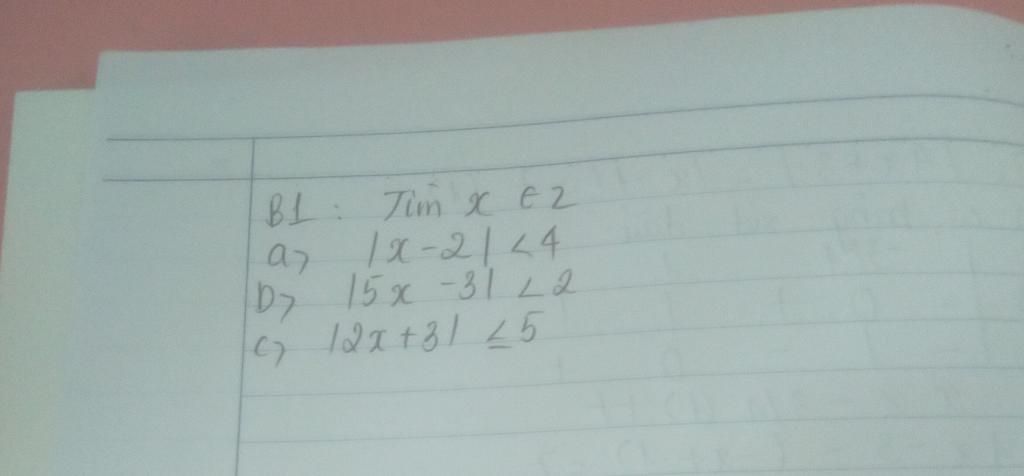 B1 : Tìm x ∈ Z
a) |x - 2| < 4
b) |5x - 3| < 2
c) |2x + 3| ≤ 5